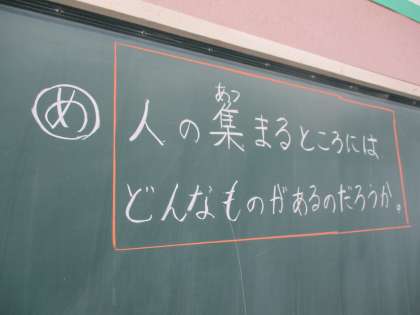 め
人の集まるところには
あつ
どんなものがあるのだろうか。